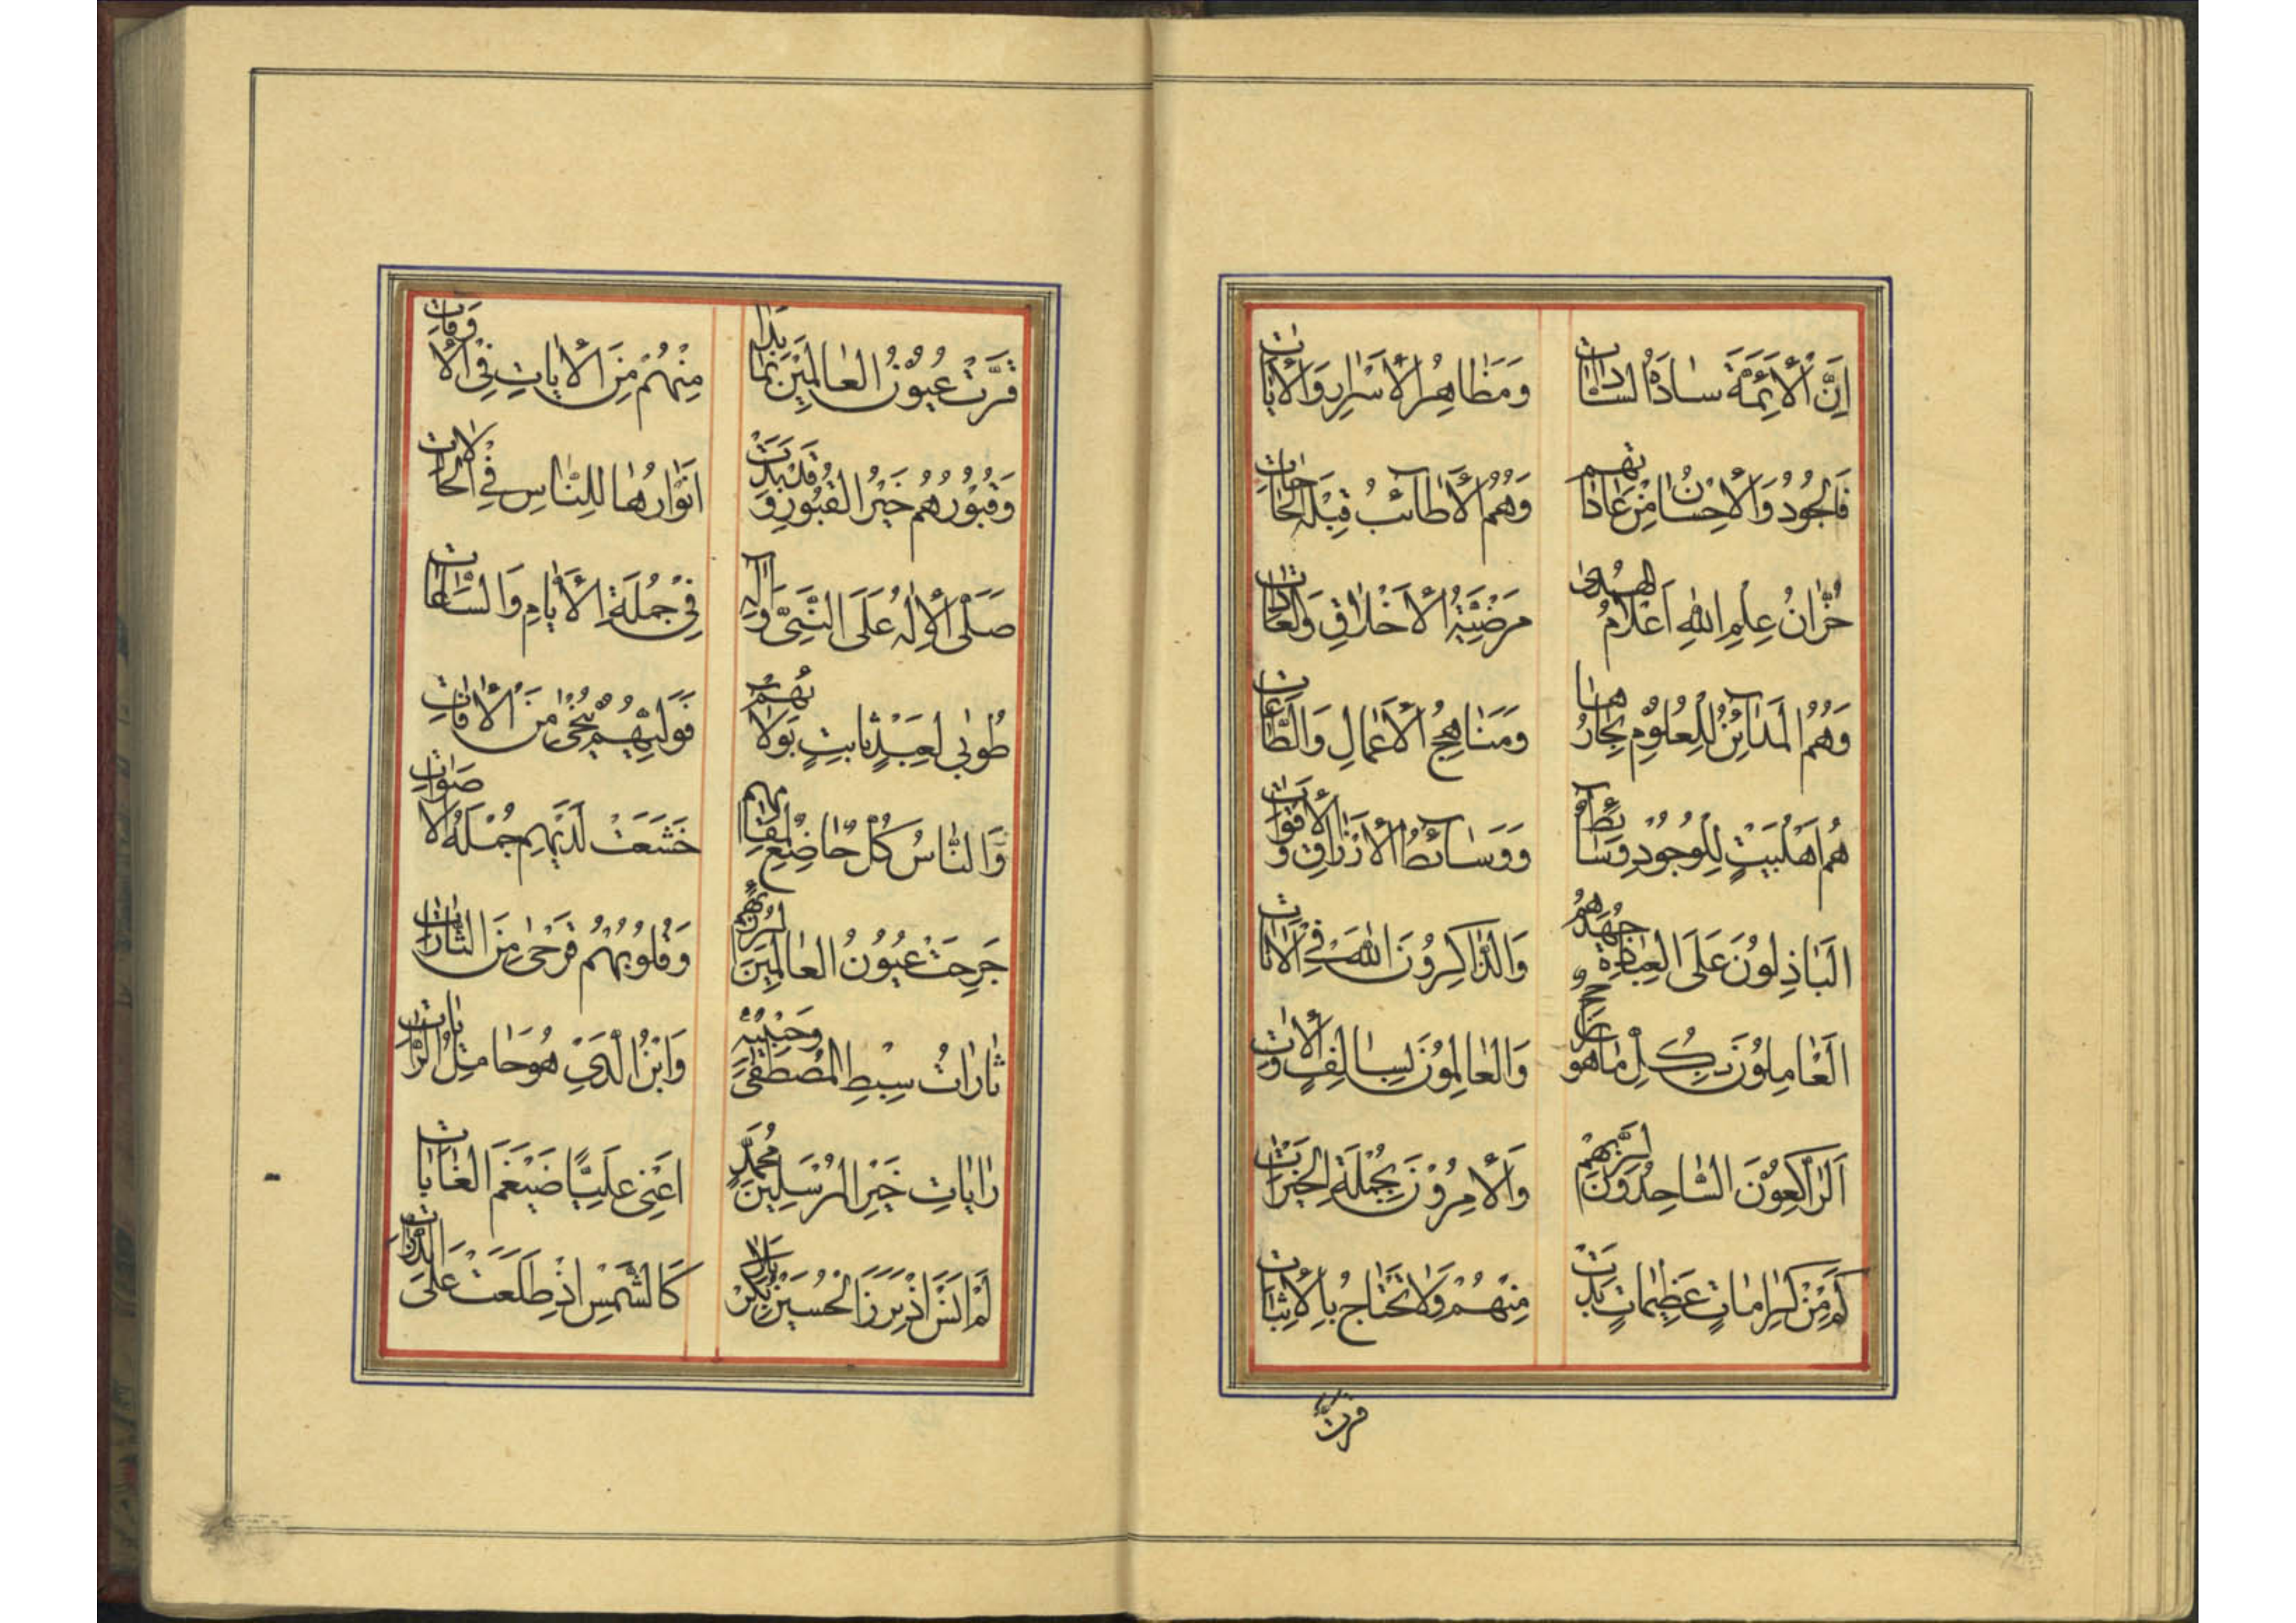 اِنَّ الْأَئِمَّةَ سادَةُ السّاداتِ وَمَظاهِرُ الْأَسْرارِ وَالْأٰياتِ
فَالْجُودُ وَالْأِحْسانُ مِنْ عاداتِهِم وَهُمُ الْأَطائِبُ قِبْلَةُ الْحاجاتِ
خُزّانُ عِلْمِ اللهِ اَعْلامُ الْهُدىٰ مَرْضِيَّةُ الْأَخْلاقِ وَالْعاداتِ
وَهُمُ الْمَدائِنُ لِلْعُلُومِ بِحارُها وَمَناهِجُ الْأَعْمالِ وَالطّاعاتِ
هُم اَهْلُبَيْتٍ لِلْوُجُودِ وَسائِطٌ وَوَسائِطُ الْأَرْزاقِ وَالْأَقْواتِ
اَلْباذِلُونَ عَلَى الْعِبادَةِ جُهْدَهُم وَالذّاكِرُونَ اللهَ فِي الْأٰناتِ
اَلْعامِلُونَ بِكُلِّ ماهُو وَالْعالِمُونَ بِسالِفٍ وَالْأٰتِ
اَلرّاكِعُونَ السّاجِدُونَ لِرَبِّهِم وَالْأٰمِرُونَ بِجُمْلَةِ الْخَيْراتِ
كَمْ مِنْ كَراماتٍ عَظِيماتٍ بَدَتْ مِنْهُمْ وَلاتَحْتاجُ بِالْأِثْباتِ
قرّت
قَرَّتْ عُيُونُ الْعالَمِينَ بِما بَدا مِنْهُمْ مِنَ الْأٰياتِ فِي الْأَوْقاتِ
وَقُبُورُهُم خَيْرُ الْقُبُورِ وَقَدْ بَدَتْ اَنْوارُها لِلنّاسِ فِي الْحالاتِ
صَلَّى الْأِلٰهُ عَلَى النَّبِيِّ وَاٰلِهِ فِي جُمْلَةِ الْأَيّامِ وَالسّاعاتِ
طُوبٰى لِعَبْدٍ ثابِتٍ بِوَلائِهِم فَوَلِيُّهُم يُنْجٰى مِنَ الْأٰفاتِ
وَالنّاسُ كُلٌّ خاضِعٌ لِمَقامِهِم خَشَعَتْ لَدَيْهِم جُمْلَةُ الْأَصْواتِ
جَرِحَتْ عُيُونُ الْعالَمِينَ وَقُلُوبُهُم قَرْحٰى مِنَ الثّاراتِ
ثاراتُ سِبْطِ الْمُصْطَفٰى وَحَبِيبِهِ وَابْنُ الَّذِي هُوَ حامِلُ الرّاياتِ
راياتِ خَيْرِ الْمُرْسَلِينَ مُحَمَّدٍ اَعْنِي عَلِيًّا ضَيْغَمَ الْغاباتِ
لَمْ اَنْسَ اِذْ بَرَزَ الْحُسَيْنُ بِكَرْبَلا كَالشَّمْسِ اِذْ طَلَعَتْ عَلَى